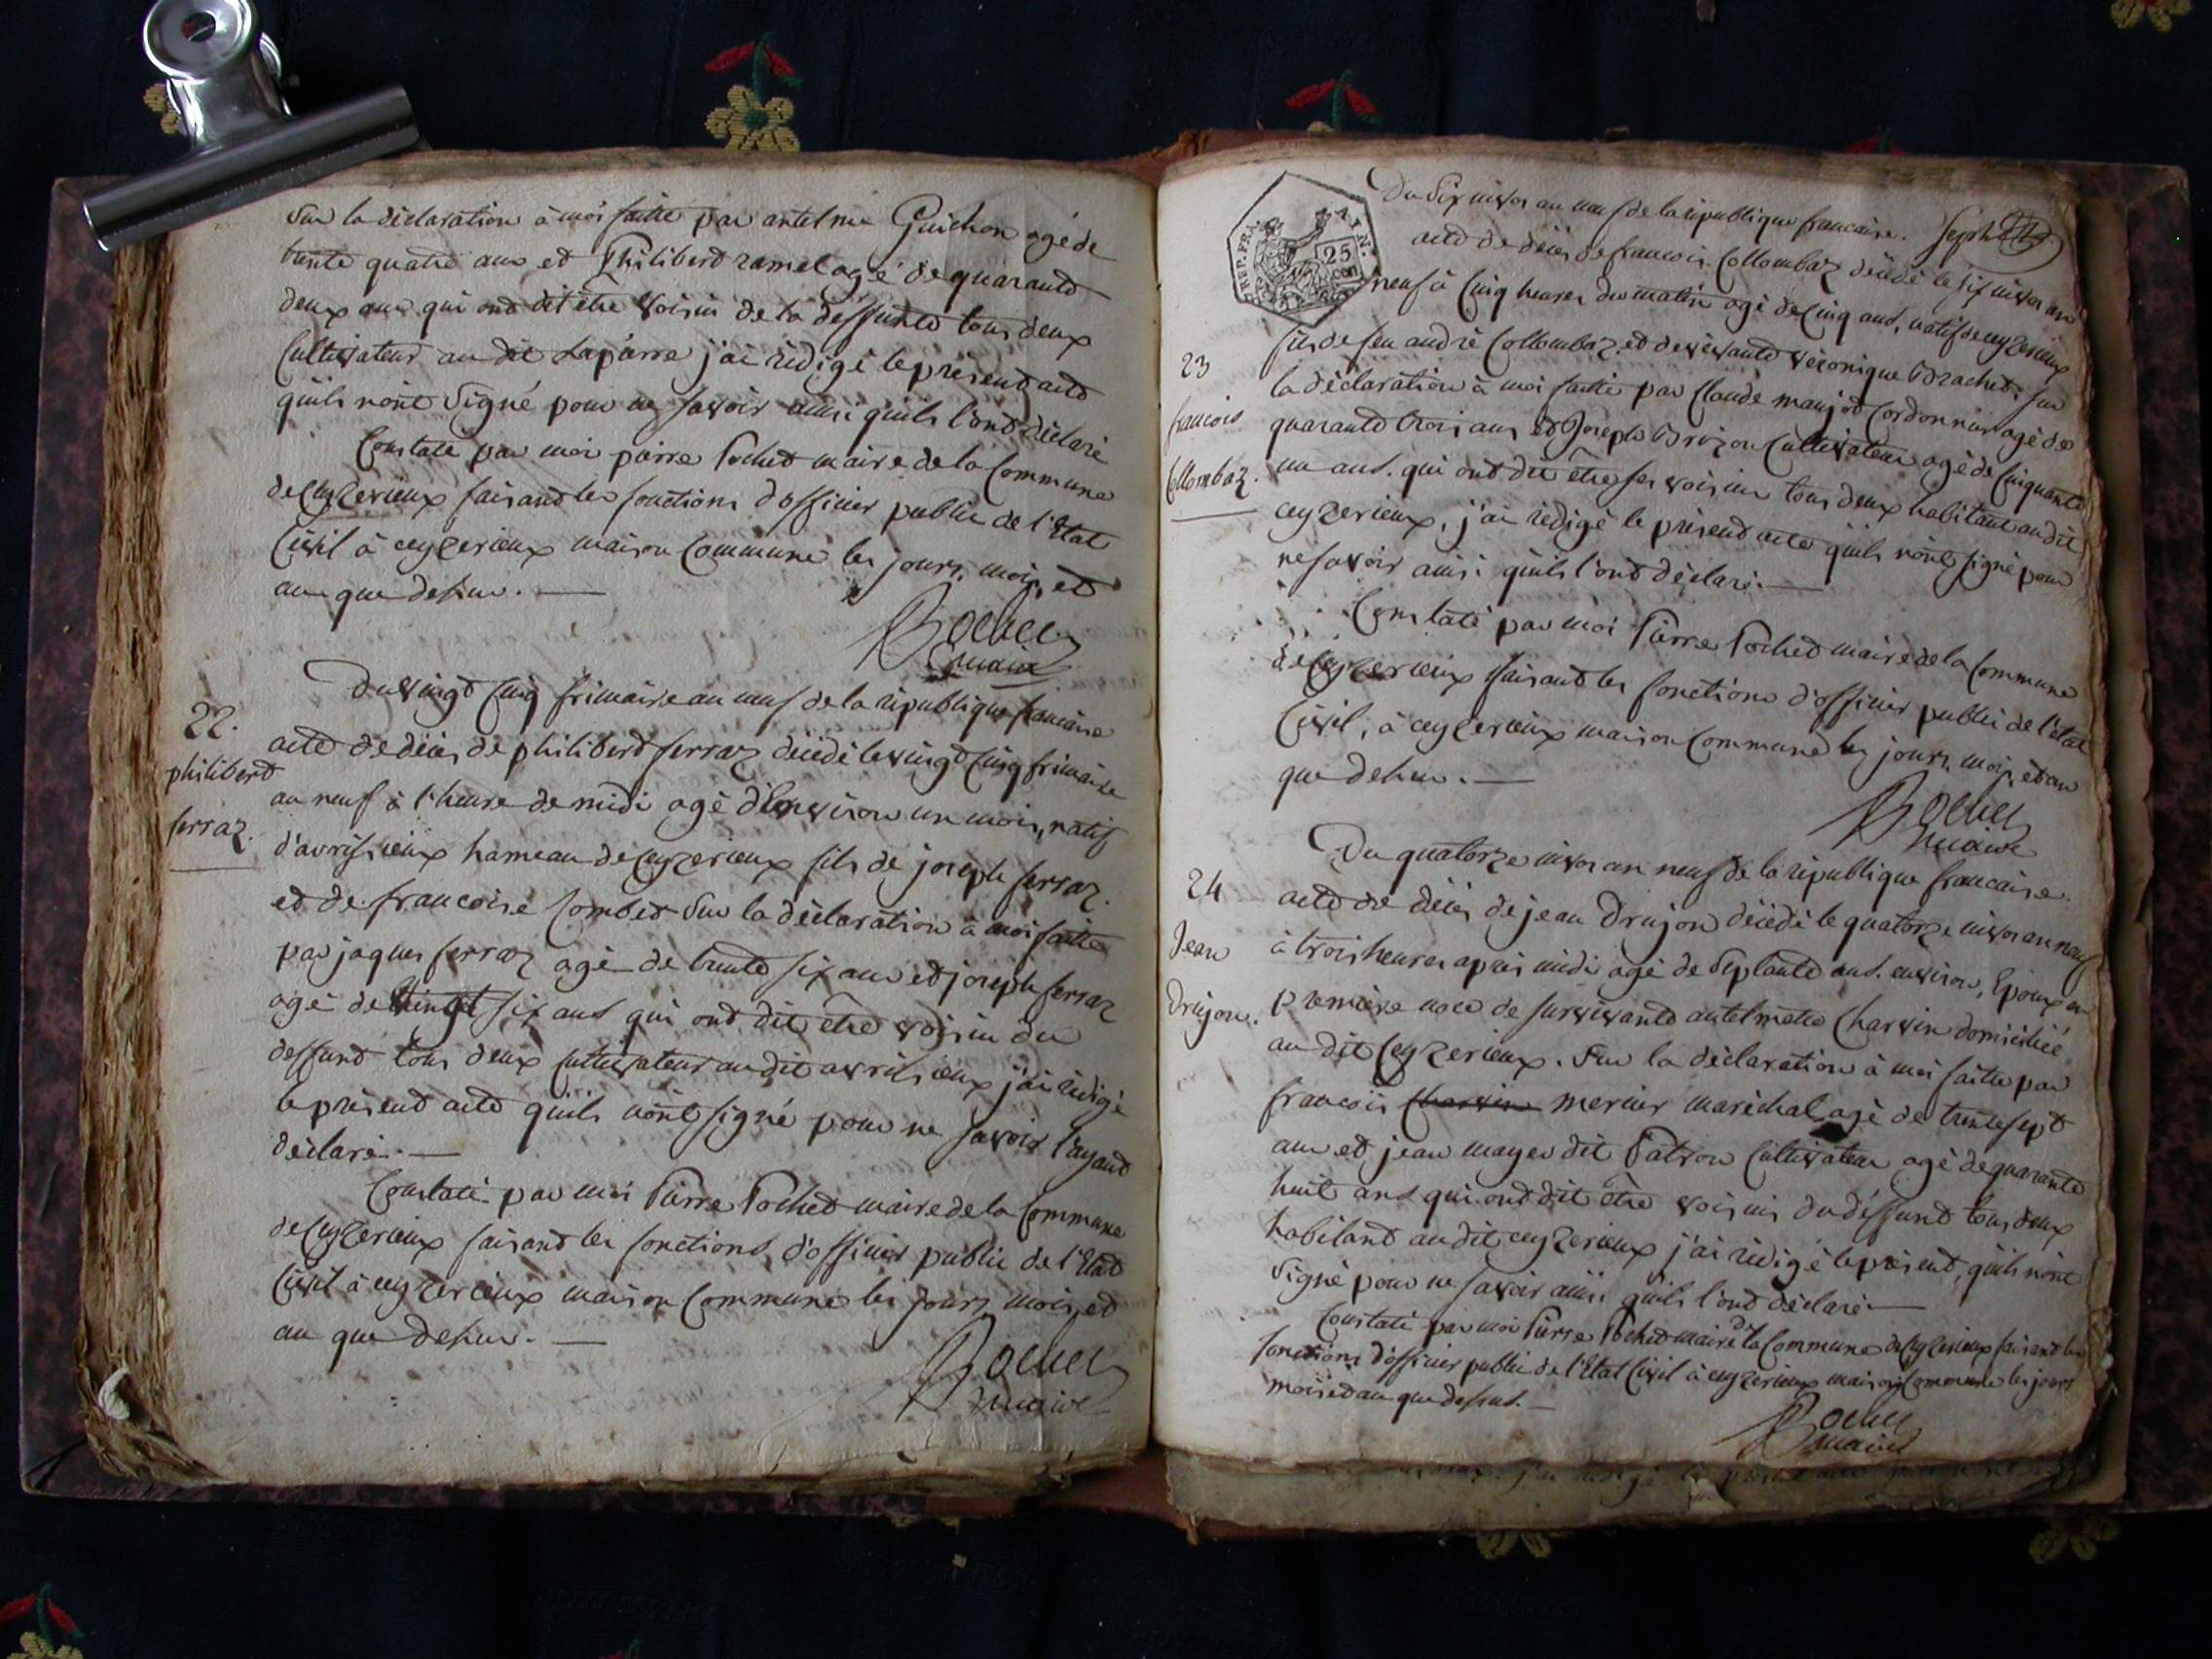 Sur la déclaration à moi faitte par antelme Guichon agé de
trente quatre ans et Philibert ramel agé de quarante
deux ans qui ont dit être voisin de la deffunte tous deux
Cultivateur au dit Lapierre j'ai rédigé le présent acte
quils n'ont Signé pour ne savoir ainsi quils l'ont déclaré
Constaté par moi pierre Pochet maire de la Commune
de Ceyzerieux faisant les fonctions d'officier public de l'Etat
Civil à ceyzerieux maison Commune les jours, mois, et
an que dessus.
Pochet
maire
22.
philibert
ferraz.
Du vingt cinq frimaire an neuf de la république francaise
acte de décès de philibert ferraz décédé le vingt cinq frimaire
an neuf à l'heure de midi agé d'Environ un mois, natif
d'avrissieux hameau de Ceyzerieux fils de joseph ferraz.
et de francoise Combet Sur la déclaration à moi faitte
par jaques ferraz agé de trente six ans et joseph ferraz
agé de Vingt six ans qui ont dit être voisin du
deffunt tous deux cultivateur au dit avrissieux j'ai rédigé
le présent acte quils n'ont signé pour ne savoir l'ayant
déclaré.
Constaté par moi Pierre Pochet maire de la Commune
de Ceyzerieux faisant les fonctions d'officier public de l'Etat
Civil à ceyzerieux maison Commune les jours, mois, et
an que dessus.
Pochet
maire
REP. FRA.
AIN.
25
cen
Du Six nivos an neuf de la république francaise. Sept
23
francois
Collombaz.
acte de décès de francois Collombaz décédé le six nivos an
neuf à Cinq heures du matin agé de Cinq ans, natif de ceyzerieux
fils de feu andré Collombaz et de vivante véronique Brachet. Sur
la déclaration à moi faitte par Claude manjot Cordonnier agé de
quarante trois ans et Joseph Brizon Cultivateur agé de Cinquante
un ans. qui ont dit être ses voisins tous deux habitant au dit
ceyzerieux, j'ai rédigé le présent acte quils n'ont signé pour
ne savoir ainsi quils l'ont déclaré.
Constaté par moi Pierre Pochet maire de la Commune
de Ceyzerieux faisant les fonctions d'officier public de l'état
Civil, à ceyzerieux maison Commune les jours, mois, et an
que dessus.
Pochet
maire
24
Jean
Drujon.
Du quatorze nivos an neuf de la république francaise.
acte de décès de jean Drujon décédé le quatorze nivos an neuf
à trois heures après midi agé de Septante ans. environ, Epoux en
première noce de survivante antelmette Charvin domiciliée
au dit Ceyzerieux. Sur la déclaration à moi faitte par
francois Charvin mercier maréchal agé de trente sept
ans et jean mayer dit Patron Cultivateur agé de quarante
huit ans qui ont dit être voisins du deffunt tous deux
habitant au dit ceyzerieux j'ai rédigé le présent, quils n'ont
Signé pour ne savoir ainsi quils l'ont déclaré.
Constaté par moi Pierre Pochet maire de la Commune de Ceyzerieux faisant les
fonctions d'officier public de l'Etat Civil à ceyzerieux maison Commune les jours
mois et an que dessus.
Pochet
maire